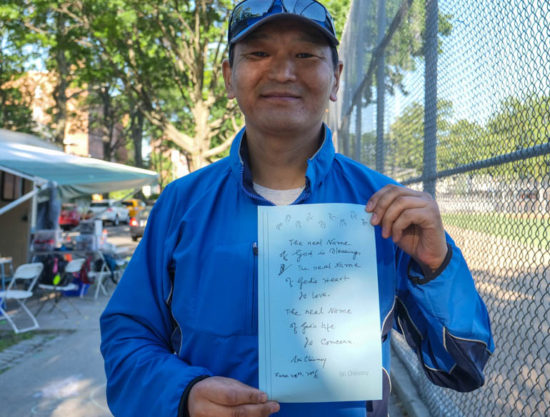 The real Name
of God is Blessing,
The real Name
of God's Heart
Is Love.
The real Name
of God's life
Is Concern.
Sri Chinmoy
Sri Chinmoy